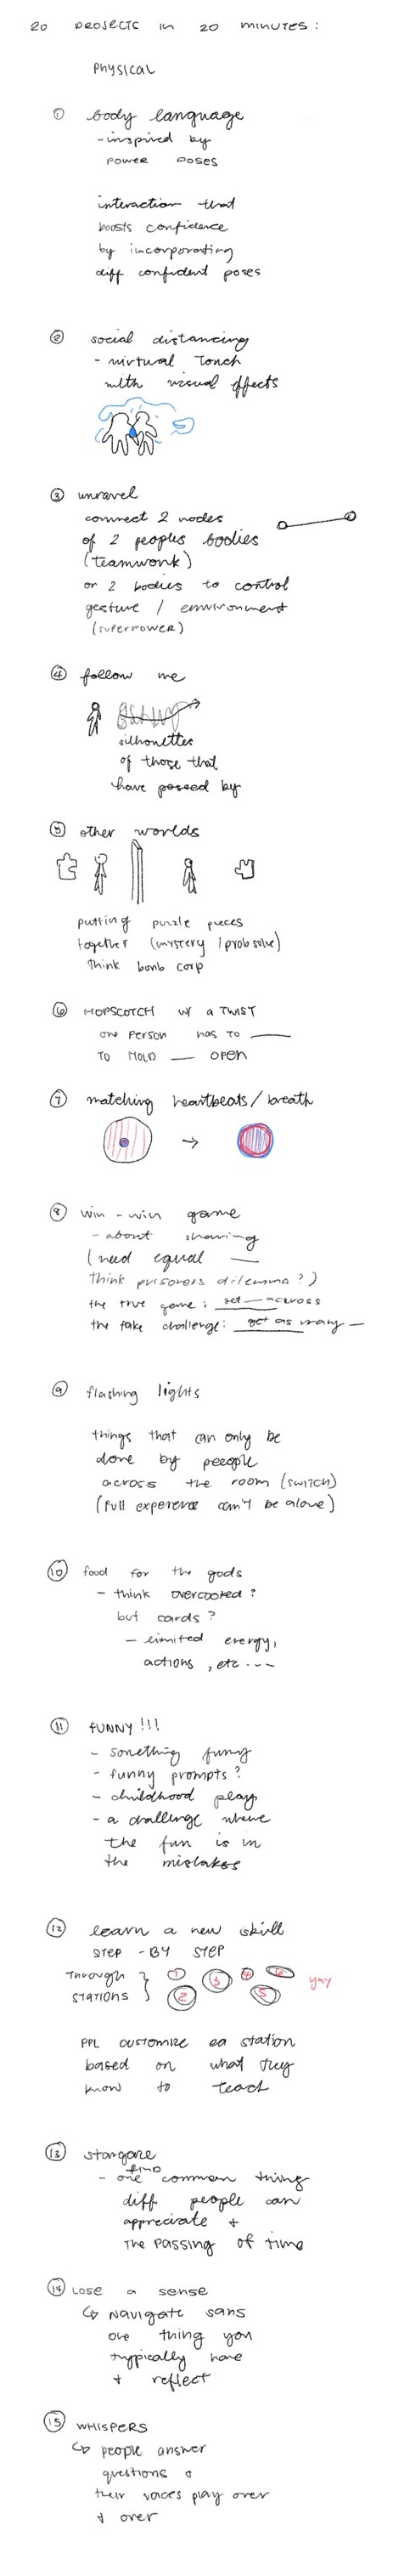 20 PROJECTS IN 20 MINUTES:
PHYSICAL
① body language
- inspired by
POWER POSES
interaction that
boosts confidence
by incorporating
diff confident poses
② social distancing
- virtual touch
with visual effects
③ unravel
connect 2 nodes
of 2 peoples bodies
(teamwork)
or 2 bodies to control
gesture / environment
(SUPERPOWER)
④ follow me
silhouettes
of those that
have passed by
⑤ other worlds
putting puzzle pieces
together (mystery / prob solve)
think bomb corp
⑥ HOPSCOTCH W/ a TWIST
one PERSON HAS TO ___
TO HOLD ___ OPEN
⑦ matching heartbeats / breath
⑧ win - win game
- about sharing
(need equal ___
think prisoners dilemma?)
the true game: get — across
the fake challenge: get as many —
⑨ flashing lights
things that can only be
done by people
across the room (switch)
(full experience can't be alone)
⑩ food for the gods
- think overcooked?
but cards?
- limited energy,
actions, etc...
⑪ FUNNY!!!
- something funny
- funny prompts?
- childhood play
- a challenge where
the fun is in
the mistakes
⑫ learn a new skill
STEP - BY STEP
THROUGH } 1 3 4 6 yay
STATIONS } 2 5
PPL customize ea station
based on what they
know to teach
⑬ stargaze
find
- one common thing
diff people can
appreciate +
THE PASSING OF TIME
⑭ LOSE a sense
↳ NAVIGATE SANS
one thing you
typically have
+ reflect
⑮ WHISPERS
↳ people answer
questions &
their voices play over
+ over